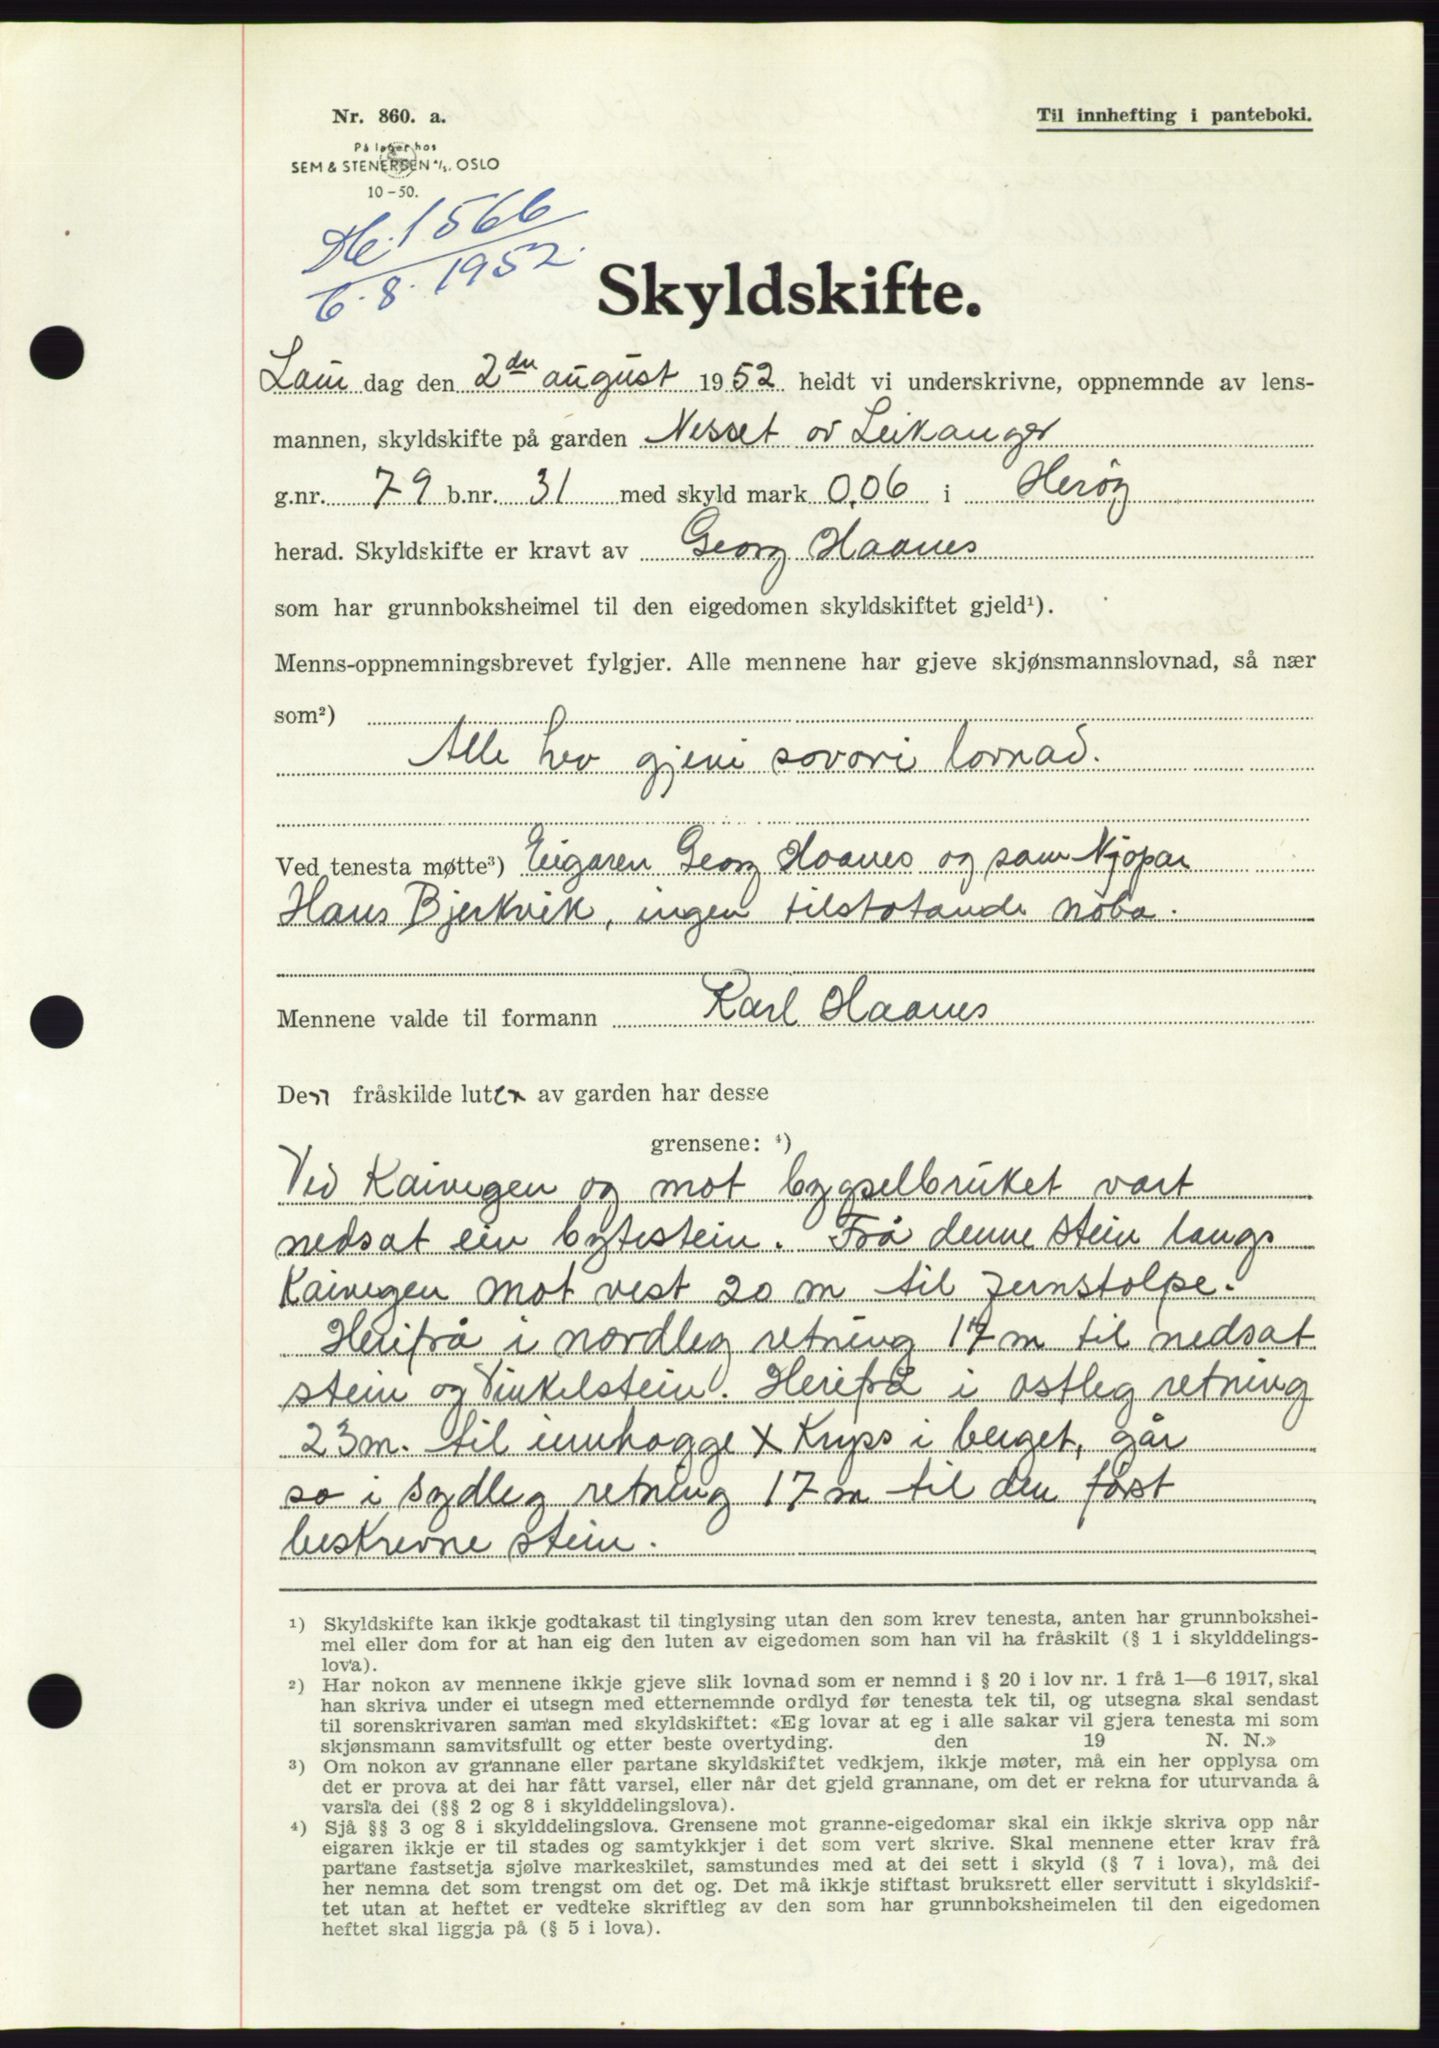 Nr. 860. a.
Til innhefting i panteboki.
På lager hos
SEM & STENERSEN A/S. OSLO
10-50.
Db. 1566
6.8. 1952.
Skyldskifte.
Lau dag den 2den august 1952 heldt vi underskrivne, oppnemnde av lens-
mannen, skyldskifte på garden Nesset av Leikanger
g.nr. 79 b.nr. 31 med skyld mark 0,06 i Herøy
herad. Skyldskifte er kravt av Georg Haanes
som har grunnboksheimel til den eigedomen skyldskiftet gjeld¹).
Menns-oppnemningsbrevet fylgjer. Alle mennene har gjeve skjønsmannslovnad, så nær
som²)
Alle hev gjeve sovori lovnad.
Ved tenesta møtte³) Eigaren Georg Haanes og som Kjøpar
Hans Bjerkvik, ingen tilstøtande naboa.
Mennene valde til formann Karl Haanes
Den fråskilde luten av garden har desse
grensene: ⁴)
Ved Kaivegen og mot bygselbruket vart
nedsat ein bytestein. Frå denne stein langs
Kaivegen mot vest 20 m til jernstolpe.
Herifrå i nordleg retning 17 m til nedsat
stein og Vinkelstein. Herifrå i østleg retning
23 m. til innhogge X Kryss i berget, går
so i sydleg retning 17 m til den først
beskrevne stein.
¹) Skyldskifte kan ikkje godtakast til tinglysing utan den som krev tenesta, anten har grunnbokshei-
mel eller dom for at han eig den luten av eigedomen som han vil ha fråskilt (§ 1 i skylddelings-
lova).
²) Har nokon av mennene ikkje gjeve slik lovnad som er nemnd i § 20 i lov nr. 1 frå 1—6 1917, skal
han skriva under ei utsegn med etternemnde ordlyd før tenesta tek til, og utsegna skal sendast
til sorenskrivaren saman med skyldskiftet: «Eg lovar at eg i alle sakar vil gjera tenesta mi som
skjønsmann samvitsfullt og etter beste overtyding. den 19 N. N.»
³) Om nokon av grannane eller partane skyldskiftet vedkjem, ikkje møter, må ein her opplysa om
det er prova at dei har fått varsel, eller når det gjeld grannane, om det er rekna for uturvanda å
varsla dei (§§ 2 og 8 i skylddelingslova).
⁴) Sjå §§ 3 og 8 i skylddelingslova. Grensene mot granne-eigedomar skal ein ikkje skriva opp når
eigaren ikkje er til stades og samtykkjer i det som vert skrive. Skal mennene etter krav frå
partane fastsetja sjølve markeskilet, samstundes med at dei sett i skyld (§ 7 i lova), må dei
her nemna det som trengst om det og. Det må ikkje stiftast bruksrett eller servitutt i skyldskif-
tet utan at heftet er vedteke skriftleg av den som har grunnboksheimelen til den eigedomen
heftet skal liggja på (§ 5 i lova).